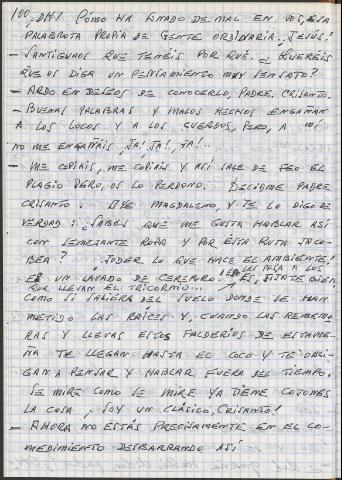 100, OH! PÓMO HA SONADO DE MAL EN VOS, ESA
PALABROTA PROPIA DE GENTE ORDINARIA, JESÚS!
— SANTIGUAOS QUE TENÉIS POR QUÉ. ¿QUERÉIS
QUE OS DIGA UN PENSAMIENTO MUY SENSATO?
— ARDO EN DESEOS DE CONOCERLO, PADRE CRISANTO.
— BUENAS PALABRAS Y MALOS HECHOS ENGAÑAN
A LOS LOCOS Y A LOS CUERDOS, PERO, A MÍ
NO ME ENGAÑÁIS, JA! JA!, JA!...
— ME COPIÁIS, ME COPIÁIS Y ASÍ SALE DE FEO EL
PLAGIO PERO, OS LO PERDONO. DECIDME PADRE
CRISANTO: OYE MAGDALENO, Y TE LO DIGO DE
VERDAD: ¿SABES QUE ME GUSTA HABLAR ASÍ
CON SEMEJANTE ROPA Y POR ESTA RUTA JACO-
BEA? JODER LO QUE HACE EL AMBIENTE!
ES UN LAVADO DE CEREBRO! LES PASA A LOS
ES, FIJATE BIEN,
QUE LLEVAN EL TRICORNIO...
COMO SI SALIERA DEL SUELO DONDE SE HAN
METIDO LAS RAÍCES Y, CUANDO LAS REMEMO-
RAS Y LLEVAS ESTOS FALDERIOS DE ESTAME-
ÑA TE LLEGAN HASTA EL COCO Y TE OBLI-
GAN A PENSAR Y HABLAR FUERA DEL TIEMPO.
SE MIRE COMO SE MIRE YA TIENE COJONES
LA COSA, ¡SOY UN CLÁSICO, CRISANTO!
— AHORA NO ESTÁS PRECISAMENTE EN EL CO-
MEDIMIENTO DESBARRANDO ASÍ